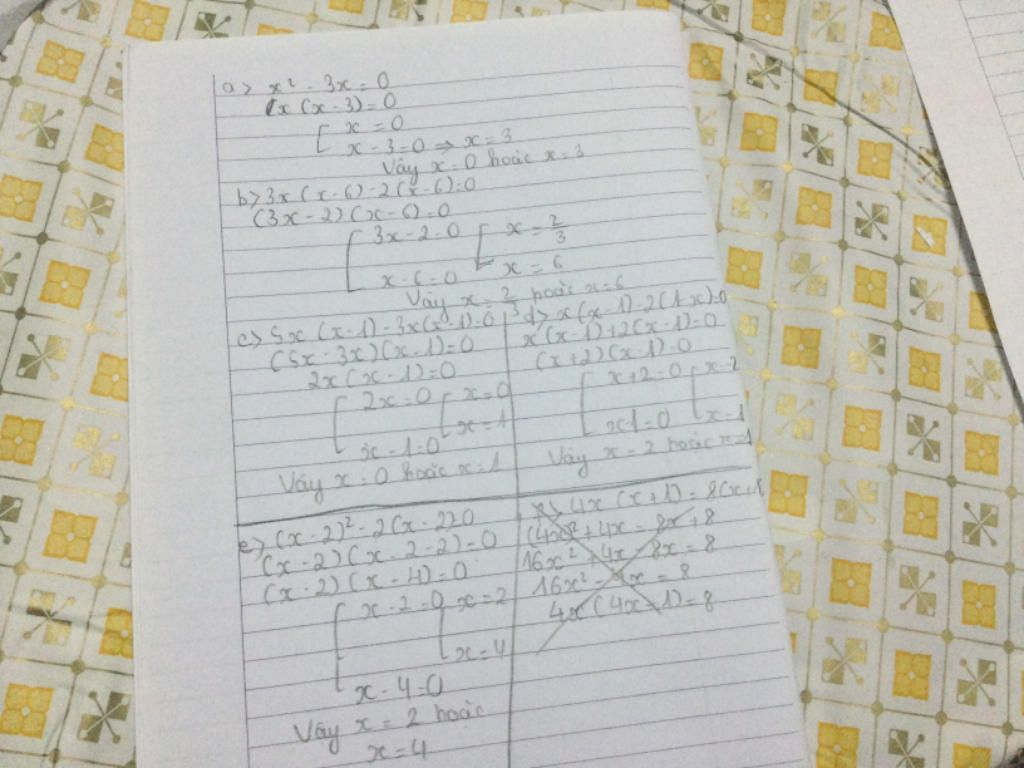 a> x² - 3x = 0
x(x-3)=0
[ x = 0
x-3=0 ⇒ x=3
Vây x=0 hoặc x=3
b> 3x(x-6)-2(x-6)=0
(3x-2)(x-6)=0
[ 3x-2=0 [ x = 2/3
x-6=0 x = 6
Vây x = 2/3 hoặc x=6
c> 5x(x-1)-3x(x-1)=0
(5x-3x)(x-1)=0
2x(x-1)=0
[ 2x=0 [ x=0
x-1=0 x=1
Vây x=0 hoặc x=1
d> x(x-1)-2(1-x)=0
x(x-1)+2(x-1)=0
(x+2)(x-1)=0
[ x+2=0 [ x-2
x-1=0 x=1
Vây x=-2 hoặc x=1
e> (x-2)²-2(x-2)=0
(x-2)(x-2-2)=0
(x-2)(x-4)=0
[ x-2=0 [ x=2
x=4
x-4=0
Vây x = 2 hoặc
x=4
4x(x+1)=8(x+1
(4x)²+4x=8x+8
16x²+4x-8x=8
16x²-4x=8
4x(4x-1)=8